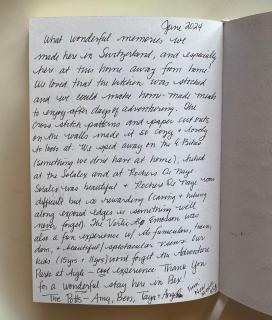 June 2024
What wonderful memories we
made here in Switzerland, and especially
here at this home away from home!
We loved that the kitchen was stocked
and we could make home-made meals
to enjoy after days of adventuring. The
cross stitch patterns and paper cut outs
on the walls made it so cozy + lovely
to look at. We sped away on the E Bikes
(something we dont have at home), hiked
at the Solalex and at Rochers De Naye
Solalex was beautiful + Rochers De Naye was
difficult but so rewarding (caving + hiking
along exposed edges is something will
never forget). The Verti Alp Emosson was
also a fun experience w/ its funiculars,
dam, + beautiful/spectacular views. Our
kids (15yrs + 11yrs) wont forget the Adventure
Park at Aigle - cool experience. Thank You
for a wonderful stay here in Bex.
- The Potts - Amy, Ben,